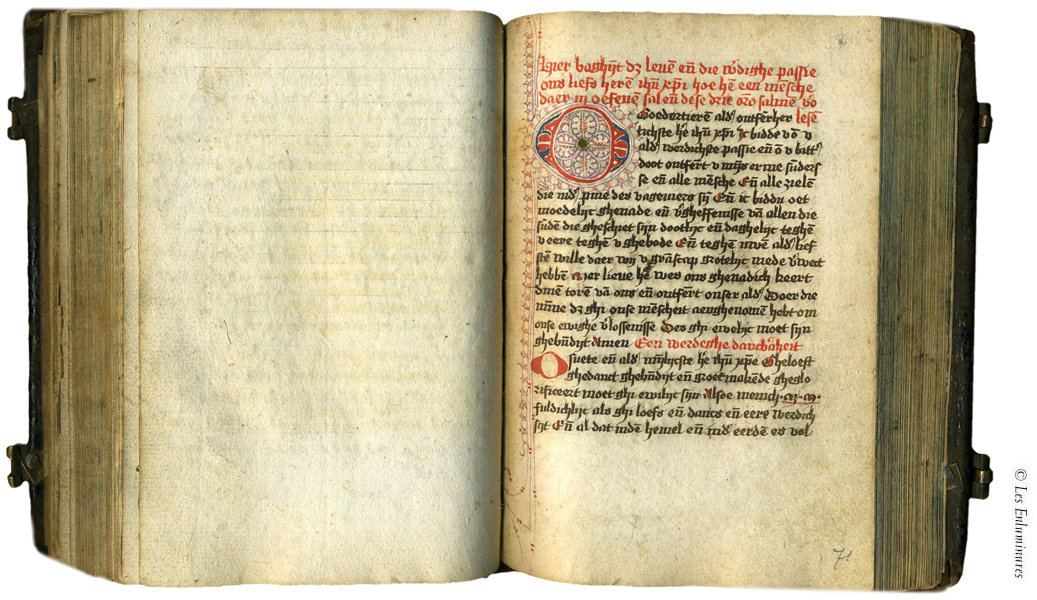 Hier beghīt dz leuē en̄ die w'dighe passie
ons liefs herē ihū xp̄i hoe hē een mēsche
daer in oefenē sal en̄ dese drie
lesē
Goedertierenē ald' ontfērher
tichste h'e ihū xp̄i Ic bidde v ō v
ald' werdichste passie en̄ ō v bitt'
doot ontfērt v mijs erme sūders
se en̄ alle mēsche En̄ alle zielē
die īnd' pine des vagevuers sij En̄ ic bidde oet
moedelijc ghenade en̄ v'gheffenisse vā allen die
sūdē die gheschiet sijn dootlijc en̄ daghelijc teghē
v eere teghē v ghebode En̄ teghē uwē ald' lief
stē wille daer wij v grāscap grotelijc mede
hebbē Mer lieue h'e wes ons ghenadich keert
vā ons en̄ ontfert onser ald' Doer die
mīne dz ghi onse mēscheit aenghenomē hebt om
onse ewighe v'lossenisse Des ghi ewelijc moet sijn
ghebn̄dijt Amen Een werdeghe dancb'heit
O suete en̄ ald' h'e ihū xp̄e Gheloeft
ghedanct ghebn̄dijt en̄ groet makēde gheglo
rificeert moet ghi ewilijc sijn Alsoe menich
fuldichlijc als ghi loefs en̄ dancs en̄ eere werdich
sijt En̄ al dat īndē hemel en̄ īnd' eerdē es vol
71
© Les Enluminures